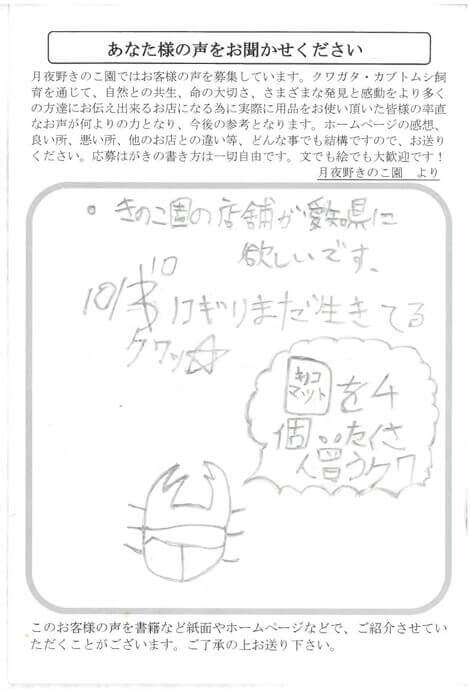 あなた様の声をお聞かせください
月夜野きのこ園ではお客様の声を募集しています。クワガタ・カブトムシ飼
育を通じて、自然との共生、命の大切さ、さまざまな発見と感動をより多く
の方達にお伝え出来るお店になる為に実際に用品をお使い頂いた皆様の率直
なお声が何よりの力となり、今後の参考となります。ホームページの感想、
良い所、悪い所、他のお店との違い等、どんな事でも結構ですので、お送り
ください。応募はがきの書き方は一切自由です。文でも絵でも大歓迎です！
月夜野きのこ園　より
。きのこ園の店舗が愛知県に
欲しいです、
10/
10
ギリまだ生きてる
クワッ☆
キノコ
マット
を4
個
買うクワ
このお客様の声を書籍など紙面やホームページなどで、ご紹介させてい
ただくことがございます。ご了承の上お送り下さい。